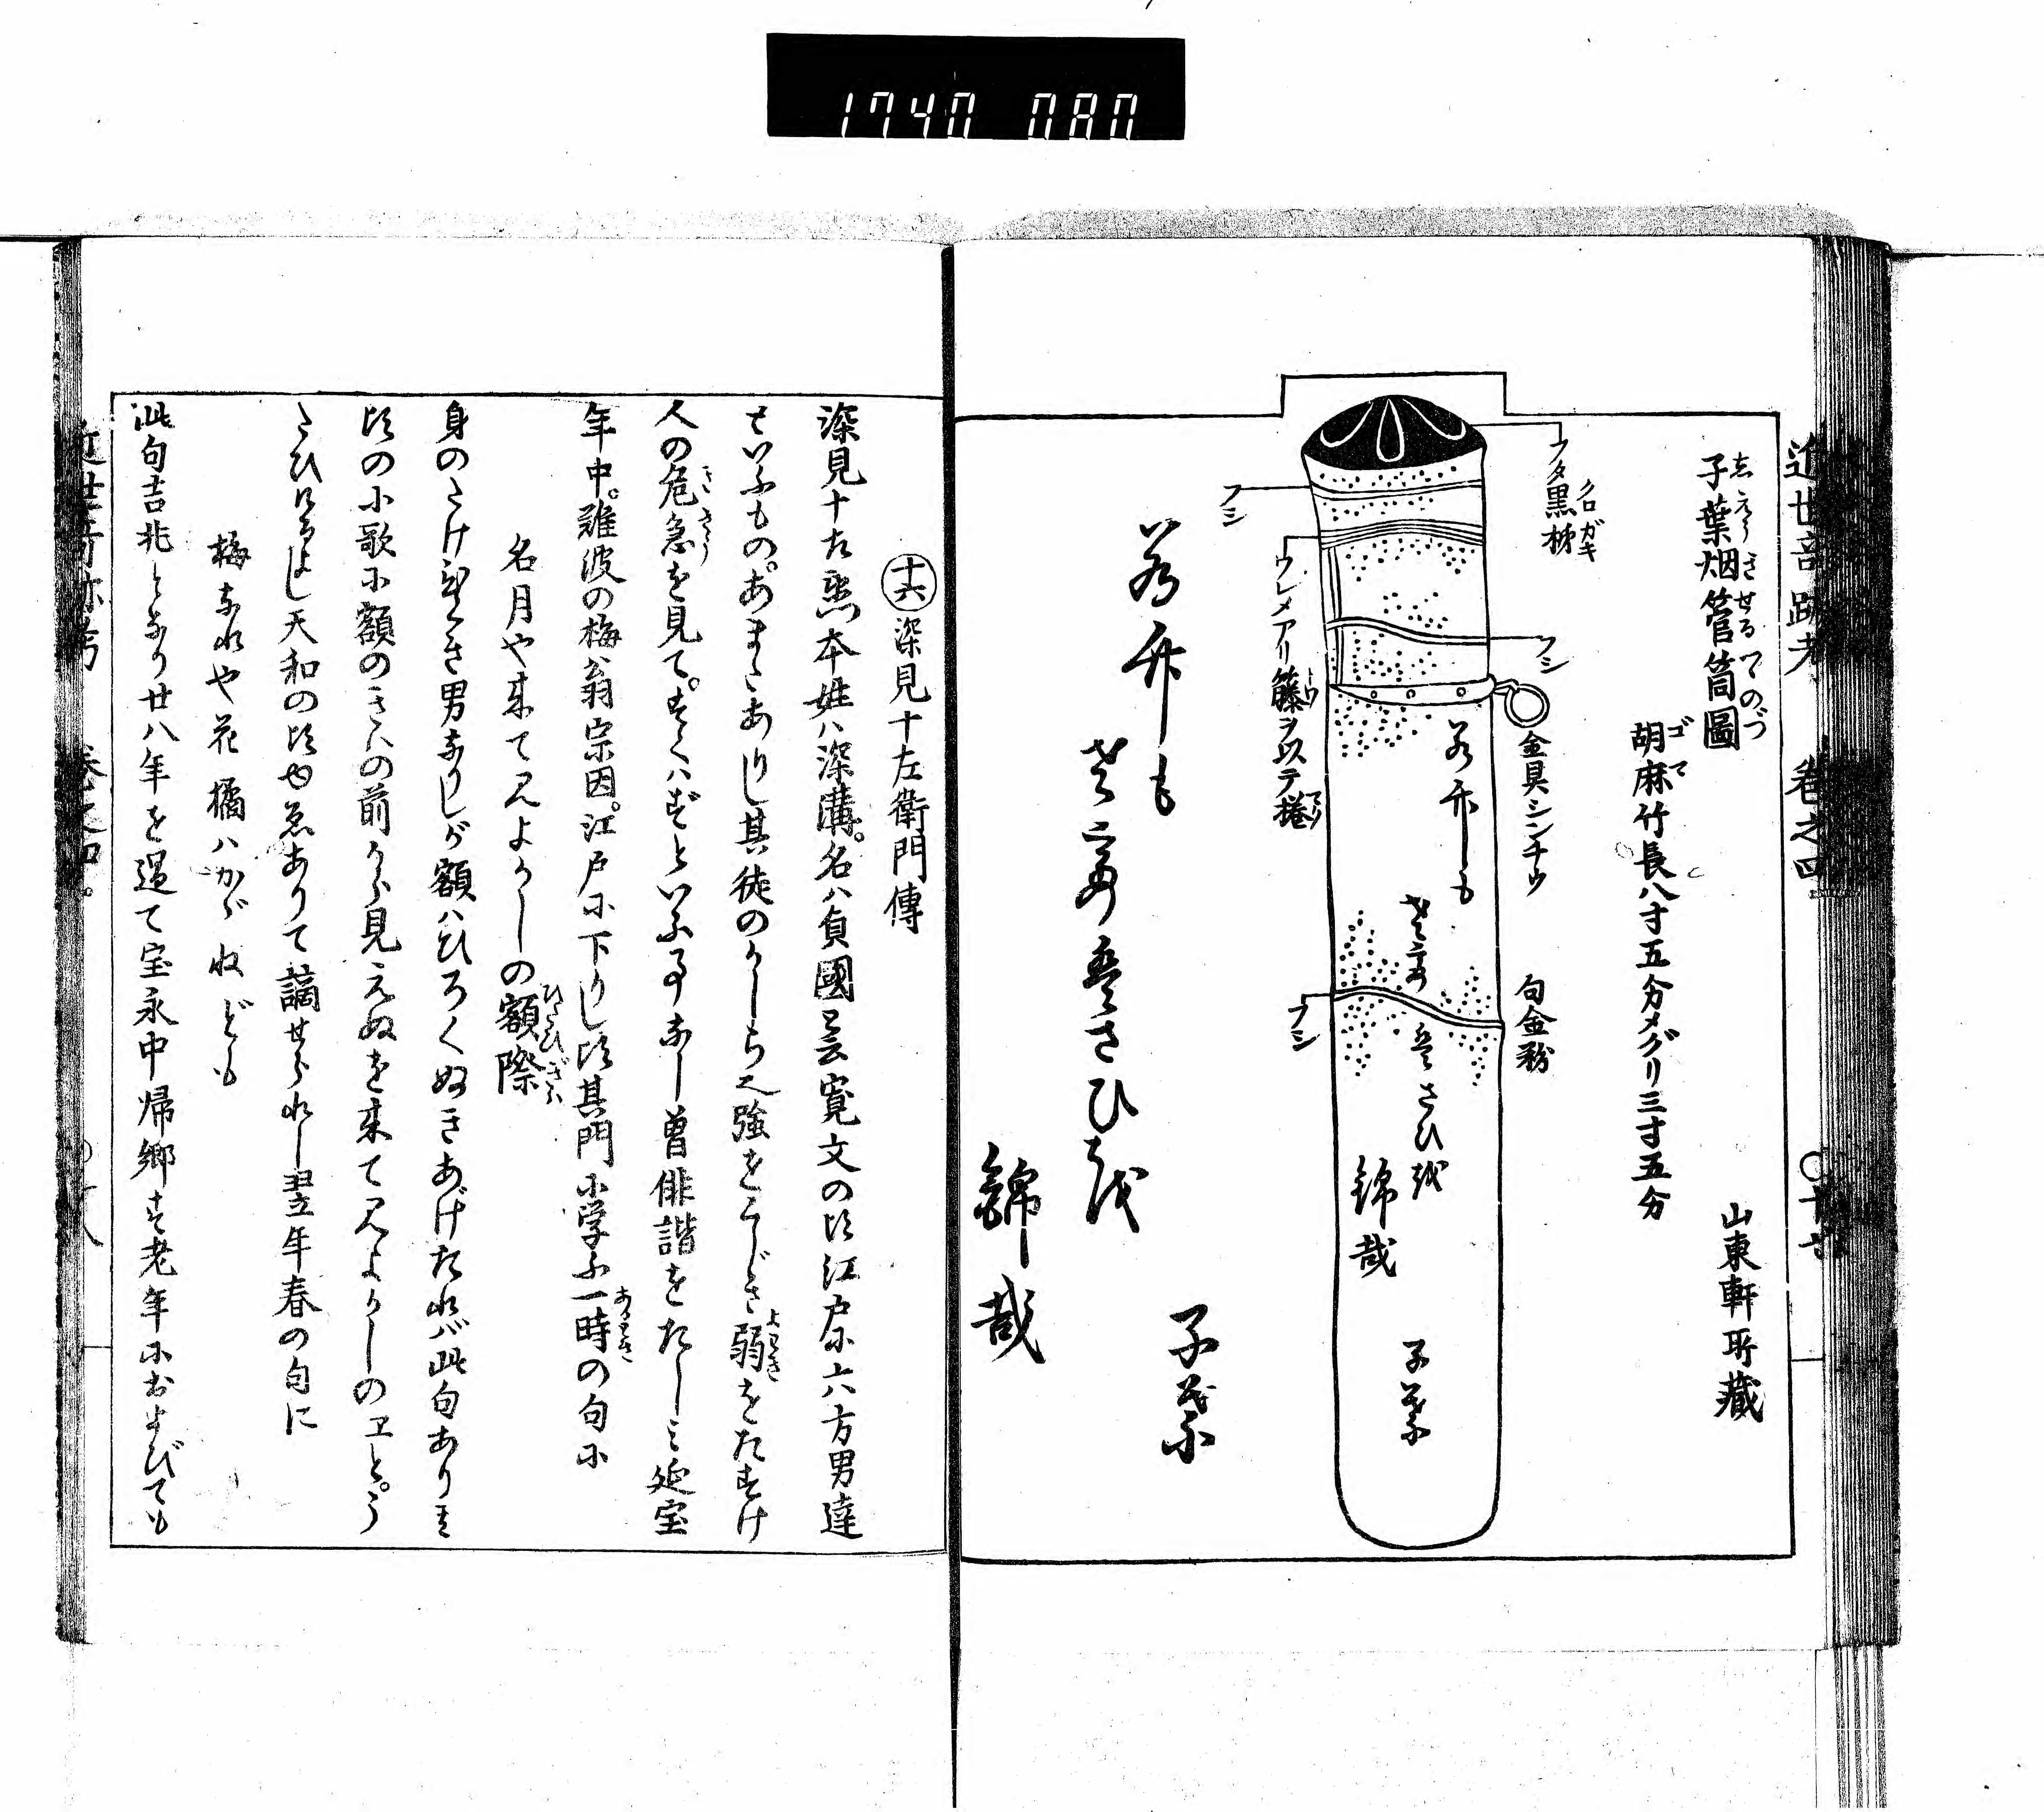 1740 080
近世奇跡考 巻之四 ○十七
子葉烟管筒圖
しえうきせるづゝのづ
山東軒所藏
胡麻竹長八寸五分メグリ三寸五分
ゴマ
フタ黒柹
クロガキ
フシ
フシ
金具シンチウ
句金粉
ウレメアリ籐ヲ以テ捲
フシ
子葉
錦哉
子葉
錦哉
十六 深見十左衛門傳
深見十左衛門本姓ハ深溝。名ハ貞國と云寛文の比江戸に六方男達
といふもの。あまたありし其徒のかしら也強をくじき弱をたすけ
よわき
人の危急を見て。すくハずといふ事なし曽俳諧をたしミ延宝
年中。難波の梅翁宗因。江戸に下りし比其門に学ふ一時の句に
あるとき
名月や来て見よかしの額際
ひたひぎは
身のたけ高き男なりしが額ハひろくぬきあげたれバ此句あり其
比の小歌に額のきハの前から見えぬを来て見よかしのヱと。う
たひけるよし天和の比ゆゑありて謫せられし翌年春の句に
梅なれや花橘ハかがねども
此句吉兆となり廿八年を過て宝永中帰郷す老年におよびても
近世奇跡考 巻之四。 ○十八